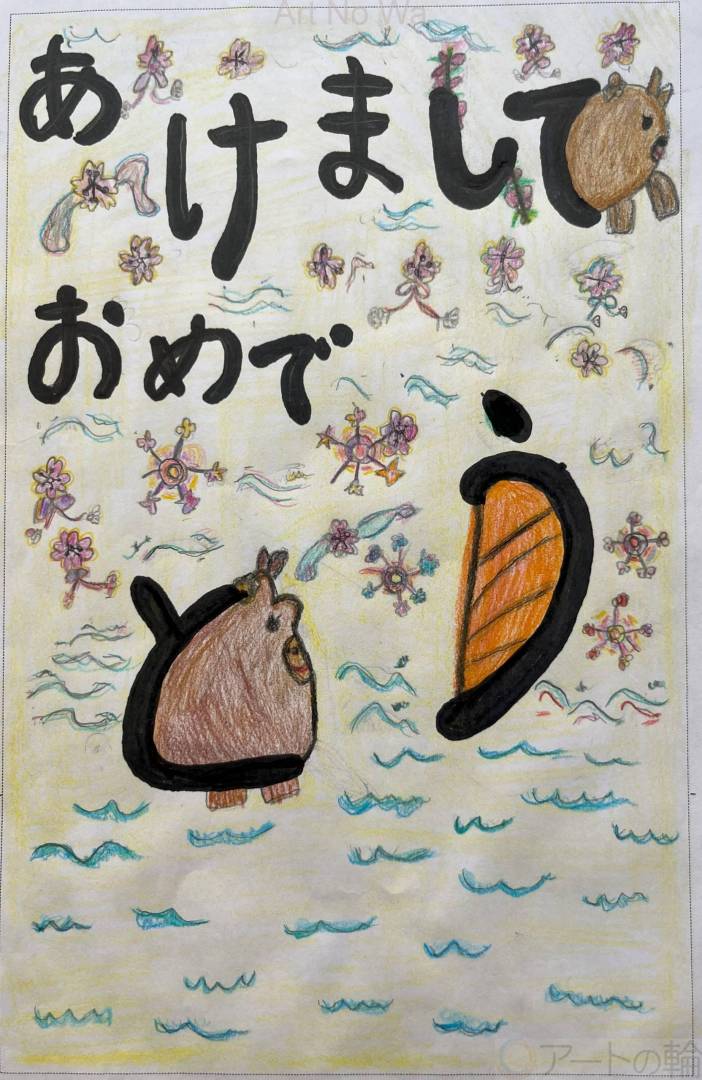 Art No Wa
あけまして
おめで
とう
アートの輪